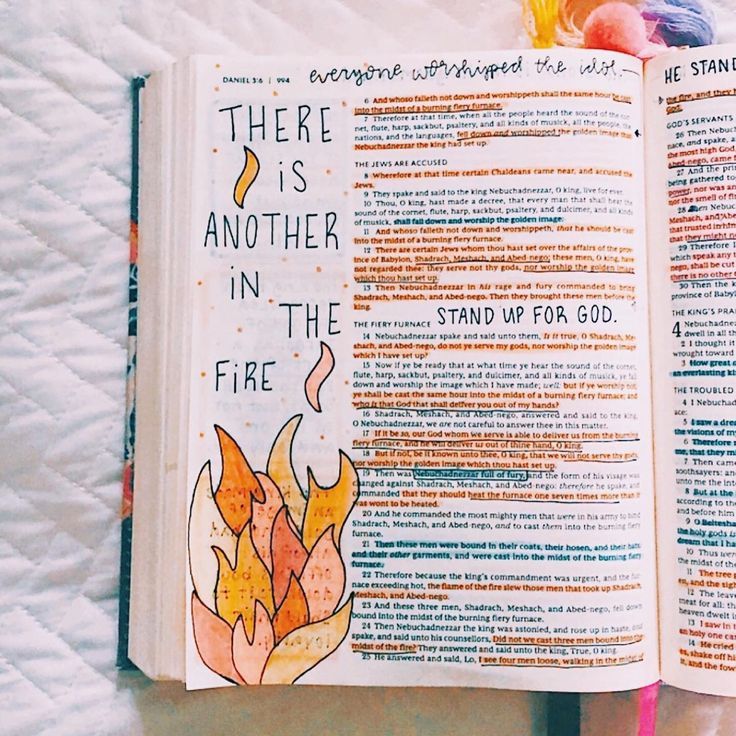 DANIEL 3:6 | 994
everyone worshipped the idol.
THERE
IS
ANOTHER
IN
THE
FIRE
6 And whoso falleth not down and worshippeth shall the same hour be cast
into the midst of a burning fiery furnace.
7 Therefore at that time, when all the people heard the sound of the cor-
net, flute, harp, sackbut, psaltery, and all kinds of musick, all the people, the
nations, and the languages, fell down and worshipped the golden image that
Nebuchadnezzar the king had set up.
THE JEWS ARE ACCUSED
8 Wherefore at that time certain Chaldeans came near, and accused the
Jews.
9 They spake and said to the king Nebuchadnezzar, O king, live for ever.
10 Thou, O king, hast made a decree, that every man that shall hear the
sound of the cornet, flute, harp, sackbut, psaltery, and dulcimer, and all kinds
of musick, shall fall down and worship the golden image:
11 And whoso falleth not down and worshippeth, that he should be cast
into the midst of a burning fiery furnace.
12 There are certain Jews whom thou hast set over the affairs of the prov-
ince of Babylon, Shadrach, Meshach, and Abed-nego; these men, O king, have
not regarded thee: they serve not thy gods, nor worship the golden image
which thou hast set up.
13 Then Nebuchadnezzar in his rage and fury commanded to bring
Shadrach, Meshach, and Abed-nego. Then they brought these men before the
king.
THE FIERY FURNACE STAND UP FOR GOD.
14 Nebuchadnezzar spake and said unto them, Is it true, O Shadrach, Me-
shach, and Abed-nego, do not ye serve my gods, nor worship the golden image
which I have set up?
15 Now if ye be ready that at what time ye hear the sound of the cornet,
flute, harp, sackbut, psaltery, and dulcimer, and all kinds of musick, ye fall
down and worship the image which I have made; well: but if ye worship not,
ye shall be cast the same hour into the midst of a burning fiery furnace; and
who is that God that shall deliver you out of my hands?
16 Shadrach, Meshach, and Abed-nego, answered and said to the king,
O Nebuchadnezzar, we are not careful to answer thee in this matter.
17 If it be so, our God whom we serve is able to deliver us from the burning
fiery furnace, and he will deliver us out of thine hand, O king.
18 But if not, be it known unto thee, O king, that we will not serve thy gods,
nor worship the golden image which thou hast set up.
19 Then was Nebuchadnezzar full of fury, and the form of his visage was
changed against Shadrach, Meshach, and Abed-nego: therefore he spake, and
commanded that they should heat the furnace one seven times more than it
was wont to be heated.
20 And he commanded the most mighty men that were in his army to bind
Shadrach, Meshach, and Abed-nego, and to cast them into the burning fiery
furnace.
21 Then these men were bound in their coats, their hosen, and their hats,
and their other garments, and were cast into the midst of the burning fiery
furnace.
22 Therefore because the king's commandment was urgent, and the fur-
nace exceeding hot, the flame of the fire slew those men that took up Shadrach,
Meshach, and Abed-nego.
23 And these three men, Shadrach, Meshach, and Abed-nego, fell down
bound into the midst of the burning fiery furnace.
24 Then Nebuchadnezzar the king was astonied, and rose up in haste, and
spake, and said unto his counsellors, Did not we cast three men bound into the
midst of the fire? They answered and said unto the king, True, O king.
25 He answered and said, Lo, I see four men loose, walking in the midst of
HE STAND
the fire, and they h
God.
GOD'S SERVANTS
26 Then Nebuc
nace, and spake, a
the most high God,
abed-nego, came f
27 And the prin
being gathered tog
power, nor was an
nor the smell of fir
28 Then Nebuc
Meshach, and Abed
that trusted in him
that they might no
29 Therefore I
which speak any t
nego, shall be cut
there is no other G
30 Then the kin
province of Babyl
THE KING'S PRAI
4 Nebuchadnez
dwell in all the
2 I thought it
wrought toward
3 How great a
an everlasting ki
THE TROUBLED
4 I Nebuchad
ace:
5 I saw a drea
the visions of my
6 Therefore
me, that they mi
7 Then came
soothsayers: and
unto me the int
8 But at the
according to the
and before him
9 O Belteshaz
the holy gods is
dream that I ha
10 Thus were
midst of the
11 The tree g
en, and the sigh
12 The leave
meat for all: th
heaven dwelt i
13 I saw in t
an holy one cam
14 He cried
es, shake off his
it, and the fow